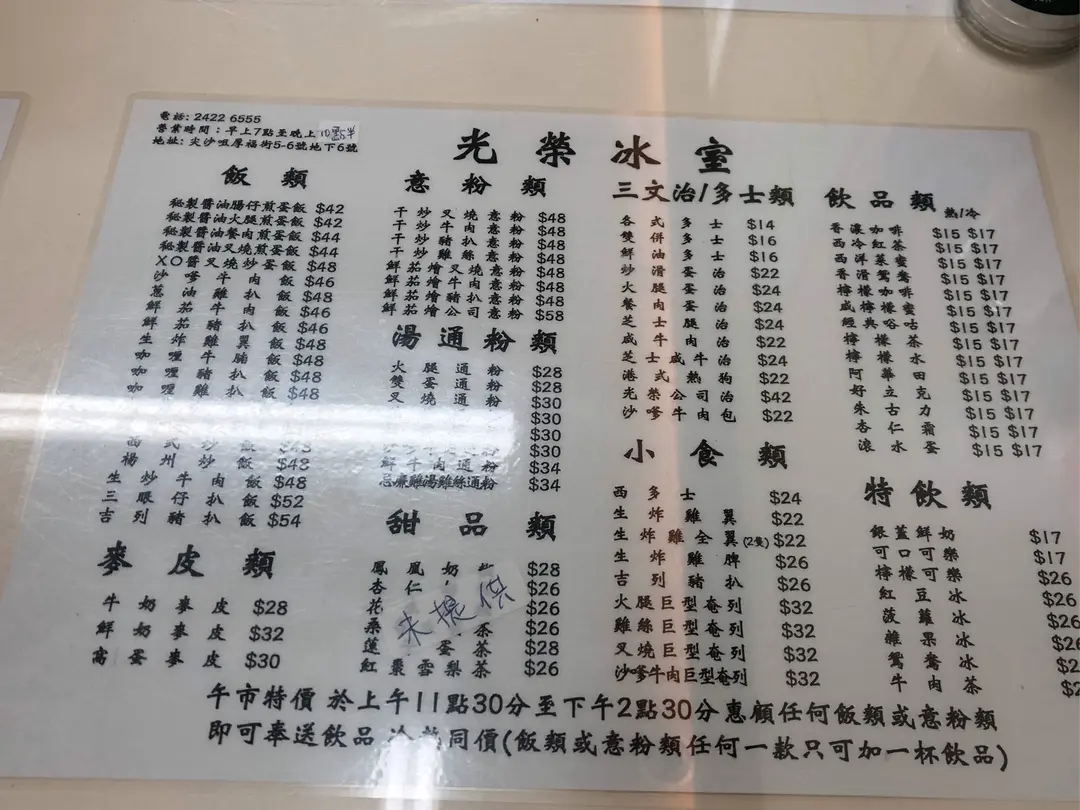 電話: 2422 6555
營業時間：早上7點至晚上10點半
地址: 尖沙咀厚福街5-6號地下6號
光榮冰室
飯類
秘製醬油腸仔煎蛋飯 $42
秘製醬油火腿煎蛋飯 $42
秘製醬油餐肉煎蛋飯 $44
秘製醬油叉燒煎蛋飯 $44
XO醬叉燒炒蛋飯 $48
沙嗲牛肉飯 $46
蔥油雞扒飯 $48
鮮茄牛肉飯 $46
鮮茄豬扒飯 $46
生炸雞翼飯 $48
咖喱牛腩飯 $48
咖喱豬扒飯 $48
咖喱雞扒飯 $48
西式炒飯 $48
楊州炒飯 $48
生炒牛肉飯 $48
三眼仔扒飯 $52
吉列豬扒飯 $54
麥皮類
牛奶麥皮 $28
鮮奶麥皮 $32
窩蛋麥皮 $30
意粉類
干炒叉燒意粉 $48
干炒牛肉意粉 $48
干炒豬扒意粉 $48
干炒雞絲意粉 $48
鮮茄燴叉燒意粉 $48
鮮茄燴牛肉意粉 $48
鮮茄燴豬扒意粉 $48
鮮茄燴公司意粉 $58
湯通粉類
火腿通粉 $28
雙蛋通粉 $28
叉燒通粉 $30
$30
$30
$30
鮮牛肉通粉 $34
忌廉雞湯雞絲通粉 $34
甜品類
鳳凰奶 $28
杏仁 $26
花 $26
桑 茶 $26
蓮 蛋茶 $28
紅棗雪梨茶 $26
未提供
三文治/多士類
各式多士 $14
雙併多士 $16
鮮油多士 $16
炒滑蛋治 $22
火腿蛋治 $24
餐肉蛋治 $24
芝士腿治 $22
咸牛肉治 $22
芝士咸牛治 $24
港式熱狗 $22
光榮公司治 $42
沙嗲牛肉包 $22
小食類
西多士 $24
生炸雞翼 $22
生炸雞全翼(2隻) $22
生炸雞脾 $26
吉列豬扒 $26
火腿巨型奄列 $32
雞絲巨型奄列 $32
叉燒巨型奄列 $32
沙嗲牛肉巨型奄列 $32
飲品類
熱/冷
香濃咖啡 $15 $17
西冷紅茶 $15 $17
西洋菜蜜 $15 $17
香滑鴛鴦 $15 $17
檸檬咖啡 $15 $17
檸檬蜜 $15 $17
經典咕 $15 $17
檸檬茶 $15 $17
檸檬水 $15 $17
阿華田 $15 $17
好立克 $15 $17
朱古力 $15 $17
杏仁霜 $15 $17
滾水蛋 $15 $17
特飲類
銀蓋鮮奶 $17
可口可樂 $17
檸檬可樂 $26
紅豆冰 $26
菠蘿冰 $26
雜果冰 $26
鴛鴦冰
牛肉茶
午市特價 於上午11點30分至下午2點30分惠顧任何飯類或意粉類
即可奉送飲品 冷熱同價(飯類或意粉類任何一款只可加一杯飲品)